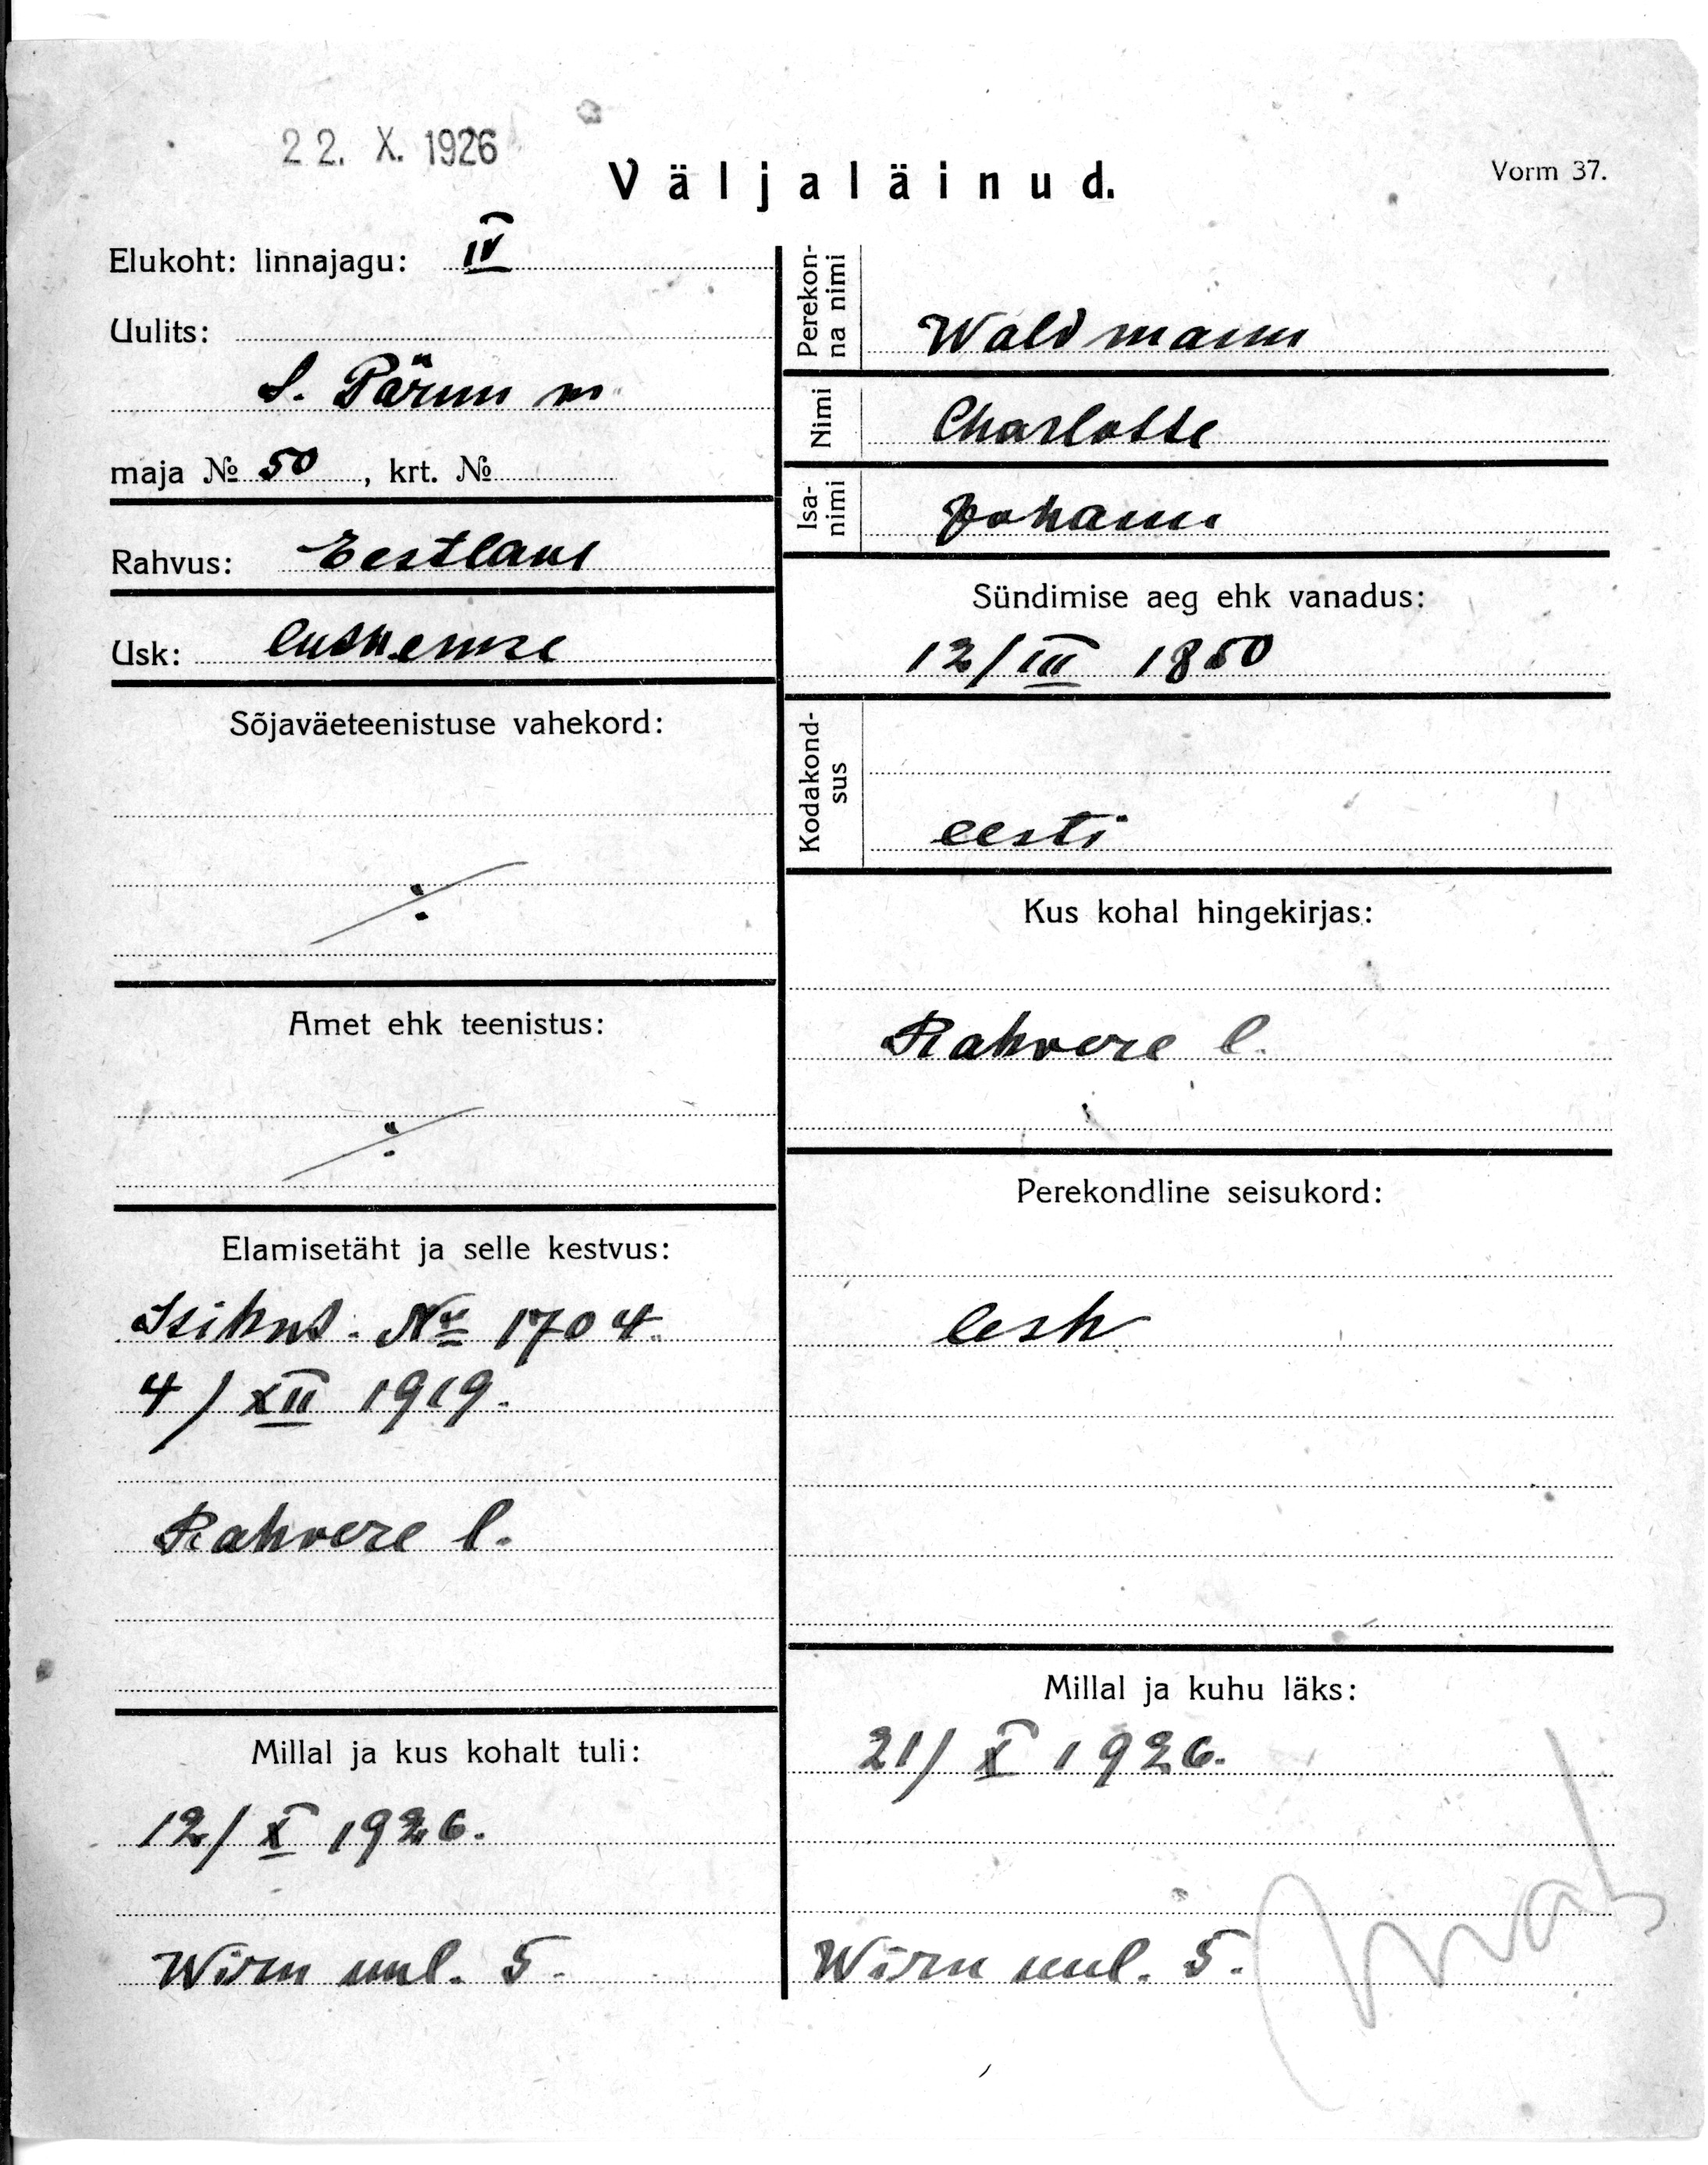 22. X. 1926
Väljaläinud.
Vorm 37.
Elukoht: linnajagu: IV
Uulits:
S. Pärnu m
maja № 50, krt. №
Rahvus: Eestlane
Usk: lutheruse
Sõjaväeteenistuse vahekord:
Amet ehk teenistus:
Elamisetäht ja selle kestvus:
Isikut. № 1704.
4/XII 1919.
Rakvere l.
Millal ja kus kohalt tuli:
12/X 1926.
Wiru uul. 5.
Perekon-
na nimi
Waldmann
Nimi
Charlotte
Isa-
nimi
Johann
Sündimise aeg ehk vanadus:
12/III 1850
Kodakond-
sus
eesti
Kus kohal hingekirjas:
Rakvere l.
Perekondline seisukord:
lesk
Millal ja kuhu läks:
21/X 1926.
Wiru uul. 5.